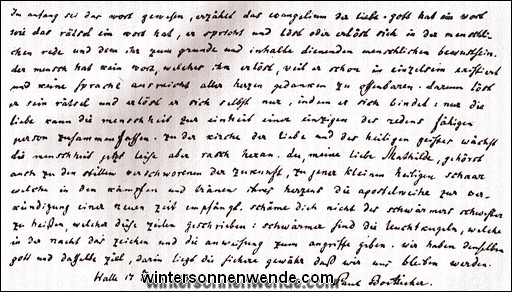 Im anfang sei das wort gewesen, erzählt das evangelium der liebe. gott hat ein wort
wie das rätsel ein wort hat, er spricht und löst oder erlöst sich in der menschli-
chen rede und dem ihr zum grunde und inhalte dienenden menschlichen bewustsein.
der mensch hat kein wort, welches ihn erlöst, weil er schon in einzelsein existiert
und keine sprache ausreicht aller herzen gedanken zu offenbaren. darum löst
er sein rätsel und erlöst er sich selbst nur, indem er sich bindet: nur die
liebe kann die menschheit zur einheit einer einzigen des redens fähigen
person zusammenfassen. zu der kirche der liebe und des heiligen geistes wächst
die menschheit jetzt leise aber rasch heran. du, meine liebe Mathilde, gehörst
auch zu den stillen verschworenen der zukunft, zu jener kleinen heiligen schaar
welche in den kämpfen und tränen ihres herzens die apostelweihe zur ver-
kündigung einer neuen zeit empfängt. schäme dich nicht des schwärmers schwester
zu heißen, welcher diese zeilen geschrieben: schwärmer sind die leuchtkugeln, welche
in der nacht das zeichen und die anweisung zum angriffe geben. wir haben denselben
gott und dasselbe ziel, darin liegt die sichere gewähr daß wir uns bleiben werden.
Halle 17 Paul Boetticher.
wintersonnenwende.com